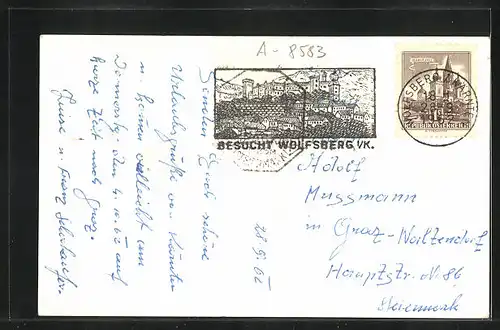 A-8583
BESUCHT WOLFSBERG, VK.
WOLFSBERG KÄRNTEN
REPUBLIK ÖSTERREICH
Senden Euch schöne
Urlaubsgrüße von Kärnten
u. kommen vielleicht am
Donnerstag den 4.10.62 auf
kurze Zeit nach Graz.
u. Franz
28.9.62
Adolf
Mussmann
in Graz-Waltendorf
Hauptstr. N. 86
Steiermark